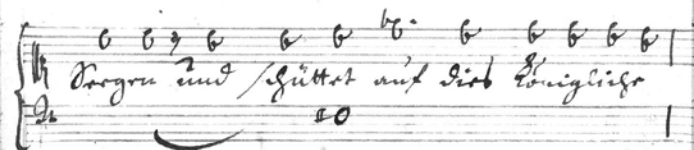 Seegen und schüttet auf dies Königliche